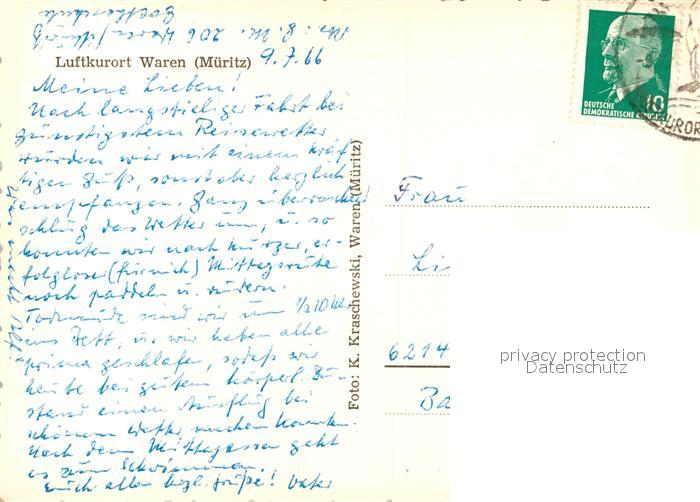 Luftkurort Waren (Müritz) 9.7.66
Meine Lieben!
Nach langstieliger Fahrt bei
günstigstem Reisewetter
wurden wir mit einem kräf-
tigen Guß, sonst aber herzlich
empfangen. Ganz überraschend
schlug das Wetter um, u. so
konnten wir nach kurzer, er-
folgloser (für mich) Mittagsruhe
noch paddeln u. rudern.
Todmüde sind wir um 1/2 10 Uhr
ins Bett, u. wir haben alle
prima geschlafen, sodaß wir
heute bei gutem körperl. Zu-
stand einen Ausflug bei
schönem Wetter machen konnten.
Nach dem Mittagessen geht
es zum Schwimmen.
Euch allen herzl. Grüße! Vater
Foto: K. Kraschewski, Waren (Müritz)
10
DEUTSCHE
DEMOKRATISCHE REPUBLIK
Frau
Li
6214
Ba
privacy protection
Datenschutz